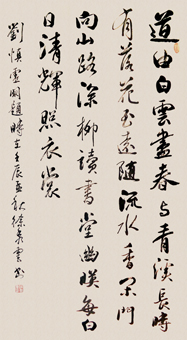 道由白雲盡春与青溪長時
有落花至遠隨流水香閒門
向山路深柳讀書堂幽映每白
日清輝照衣裳
劉慎虛闕題時在壬辰孟秋徐